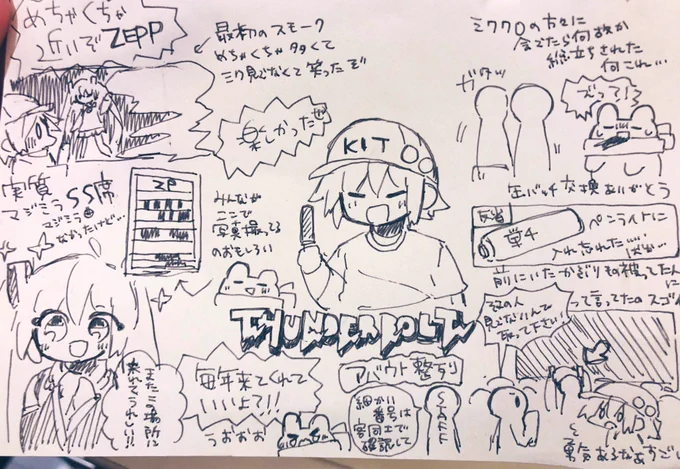 めちゃくちゃ
近いぞZEPP
最初のスモーク
めちゃくちゃ多くて
ミク見えなくて笑ったぞ
楽しかったぜ
KIT
ミククロの方々に
会えたら何故か
総立ちされた
何これ…
ガタッ
缶バッチ交換ありがとう
反省
単4
ペンライトに
入れ忘れた……
ばか…
実質
マジミラSS席
マジミラ
なかったけど…
ZP
みんなが
ここで
写真撮ってる
のおもしろい
前にいた
その人
見えないんで
取って下さい!
って言ってたのスゴイ
THUNDERBOLT
またこの場所に
来れてうれしい!!
毎年来てくれて
いいよて!!
うおおお
アバウト整列
細かい
番号は
客同士で
確認して
STAFF
勇気あるなあすごい